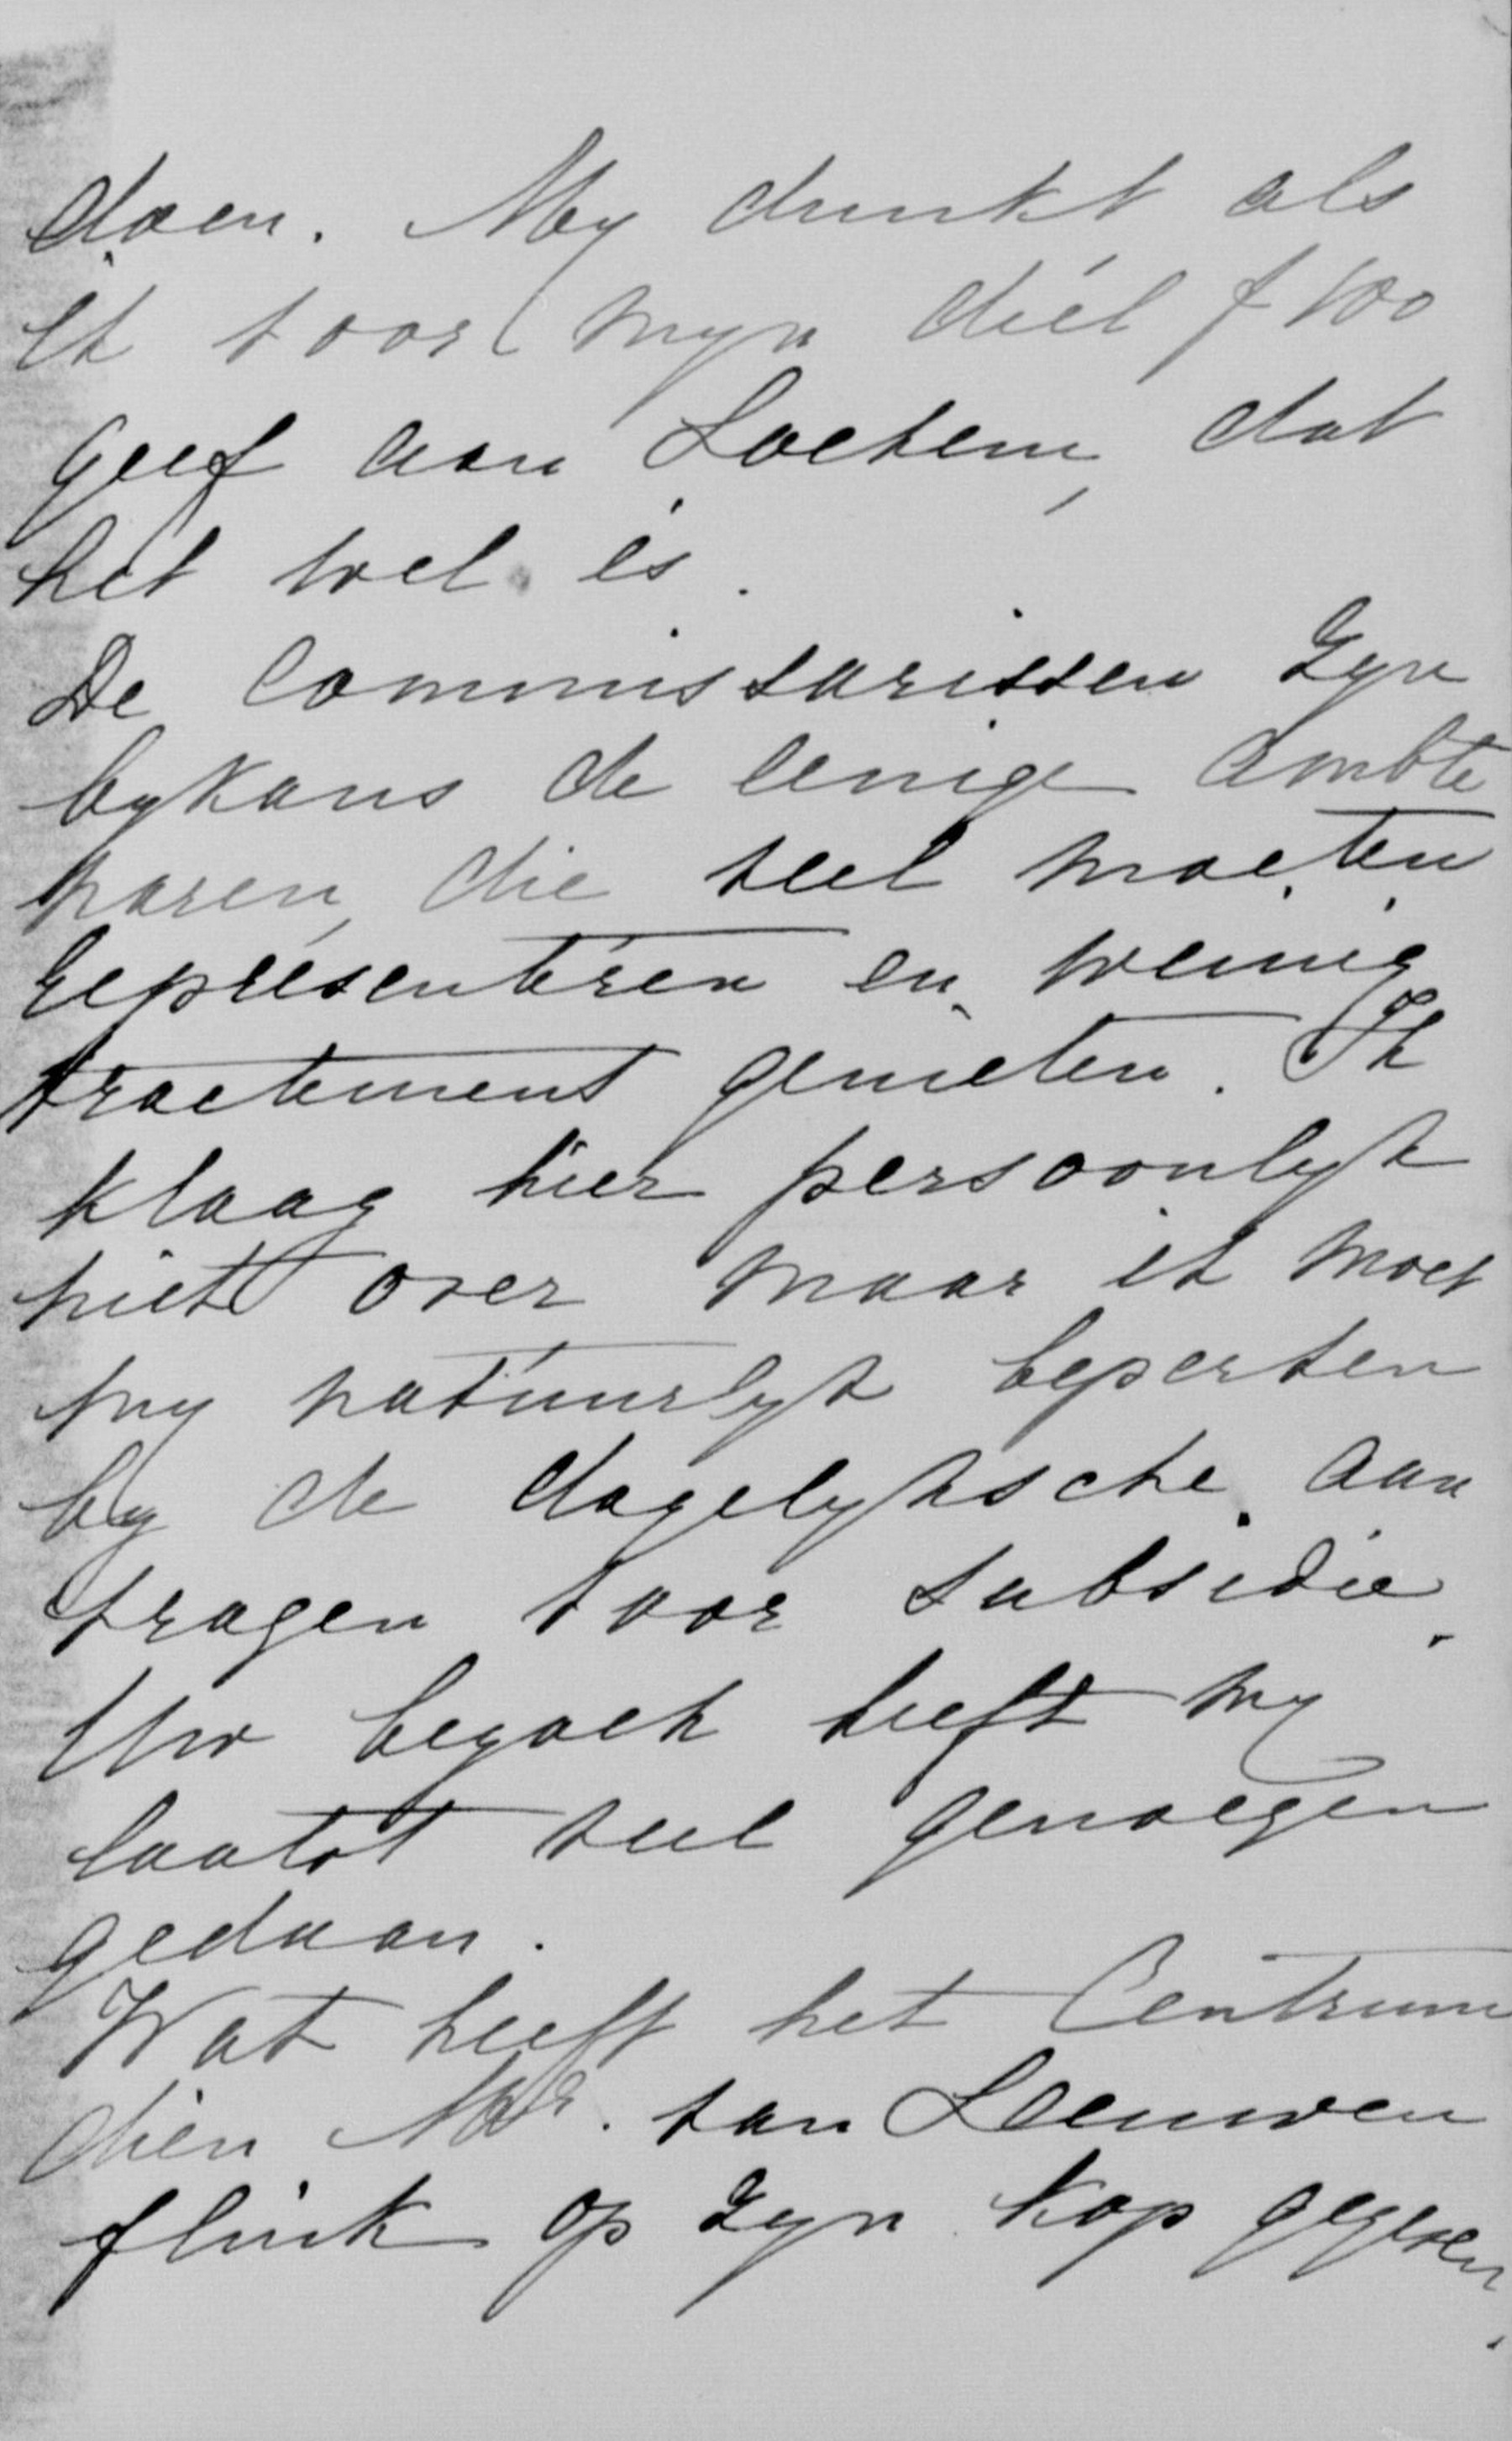 doen. My dunkt als
ik voor myn deel f 100
geef aan Lochem, dat
het wel is.
De Commissarissen zyn
bykans de eenige ambte
naren, die veel moeten
representeren en weinig
tractement genieten. Ik
klaag hier persoonlyk
niet over maar ik moet
my natuurlyk beperken
by de dagelyksche aan
vragen voor subsidie.
Uw bezoek heeft my
laatst veel genoegen
gedaan.
Wat heeft het Centrum
dien Mr. van Leeuwen
flink op zyn kop gegeven,